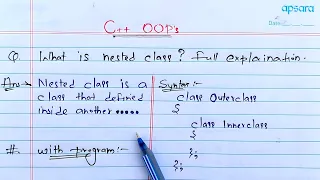 apsara
Date:
C++ OOP's
Q. What is nested class? full explaination.
Ans→ Nested class is a
class that defined
inside another.....
Syntax:-
class Outerclass
{
class Innerclass
{
};
};
# with program:-